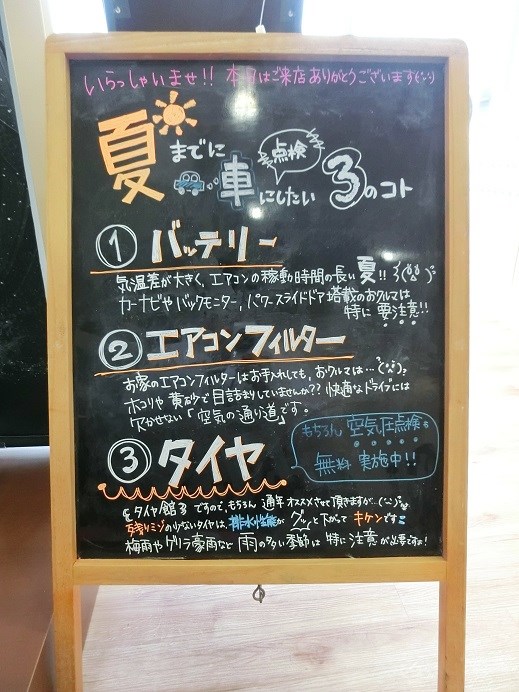 いらっしゃいませ!! 本日はご来店ありがとうございます
夏までに
点検
車にしたい3のコト
① バッテリー
気温差が大きく、エアコンの稼動時間の長い夏!!
カーナビやバックモニター, パワースライドドア搭載のおクルマは
特に要注意!!
② エアコンフィルター
お家のエアコンフィルターはお手入れしても、おクルマでは…
ホコリや黄砂で目詰まりしていませんか?? 快適なドライブには
欠かせない「空気の通り道」です。
もちろん空気圧点検も
無料実施中!!
③ タイヤ
タイヤ館ですので、もちろん通年オススメさせて頂きますが…
残りミゾの少ないタイヤは、排水性能がグッと下がってキケンです
梅雨やゲリラ豪雨など雨の多い季節は特に注意が必要ですよ!